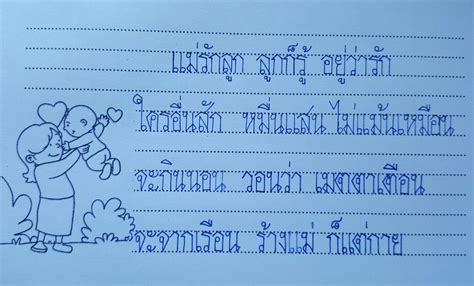 แม่รักลูก ลูกก็รู้ อยู่ว่ารัก
ใครอื่นสัก หมื่นแสน ไม่แม้นเหมือน
จะกินนอน วอนว่า เมตตาเตือน
จะจากเรือน ร้างแม่ ก็แต่กาย